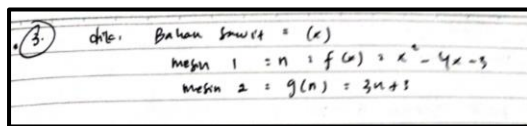 3. dik. Bahan sawit = (x)
mesin 1 = n = f(x) = x² - 4x - 3
mesin 2 = g(n) = 3n + 3